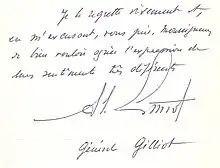 Je le regrette vivement et,
en m'excusant, vous prie, monseigneur
de bien vouloir agréer l'expression de
mes sentiments très déférents
Général Gilliot